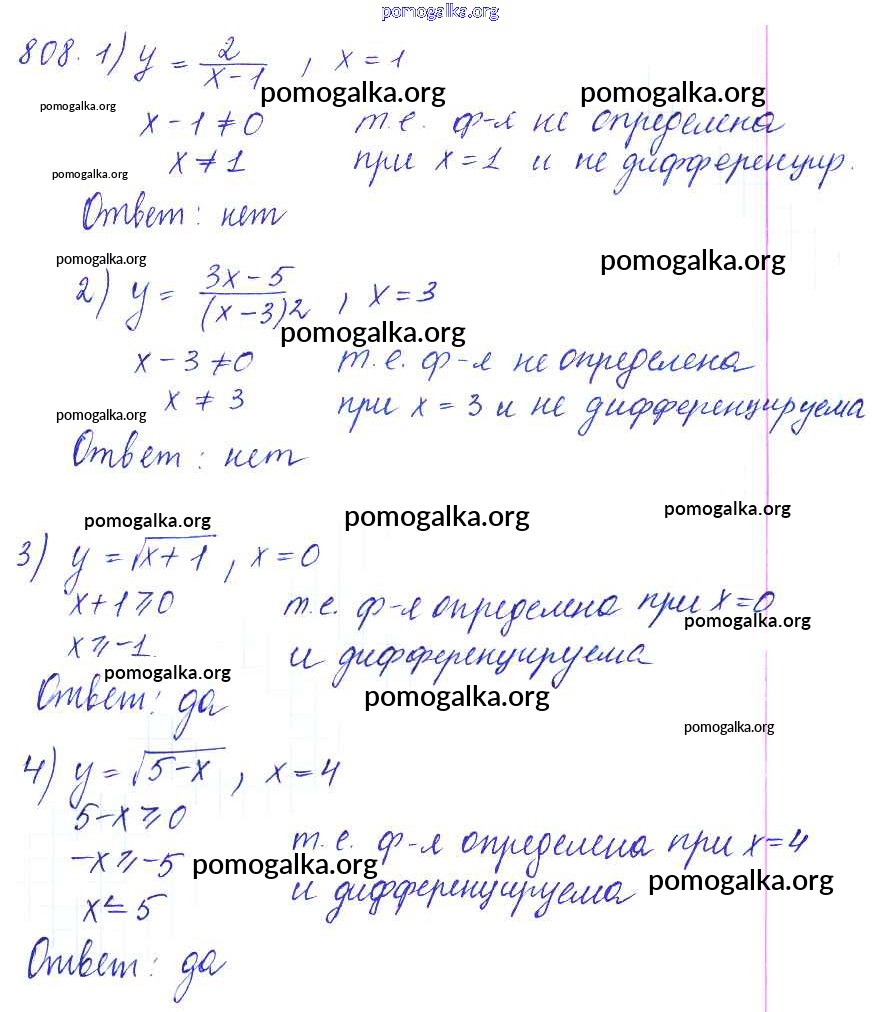 pomogalka.org
808. 1) y = 2/(x-1) , x = 1
pomogalka.org pomogalka.org
pomogalka.org
x - 1 ≠ 0 т.е. ф-я не определена
x ≠ 1 при x = 1 и не дифференцир.
pomogalka.org
Ответ: нет
pomogalka.org pomogalka.org
2) y = (3x - 5)/(x - 3)2 , x = 3
pomogalka.org
x - 3 ≠ 0 т.е. ф-я не определена
x ≠ 3 при x = 3 и не дифференцируема
pomogalka.org
Ответ: нет
pomogalka.org pomogalka.org pomogalka.org
3) y = √(x + 1) , x = 0
x + 1 ⩾ 0 т.е. ф-я определена при x = 0
pomogalka.org
x ⩾ -1. и дифференцируема
pomogalka.org
Ответ: да
pomogalka.org
pomogalka.org
4) y = √(5 - x) , x = 4
5 - x ⩾ 0
-x ⩾ -5 т.е. ф-я определена при x = 4
pomogalka.org pomogalka.org
x ≤ 5 и дифференцируема
Ответ: да